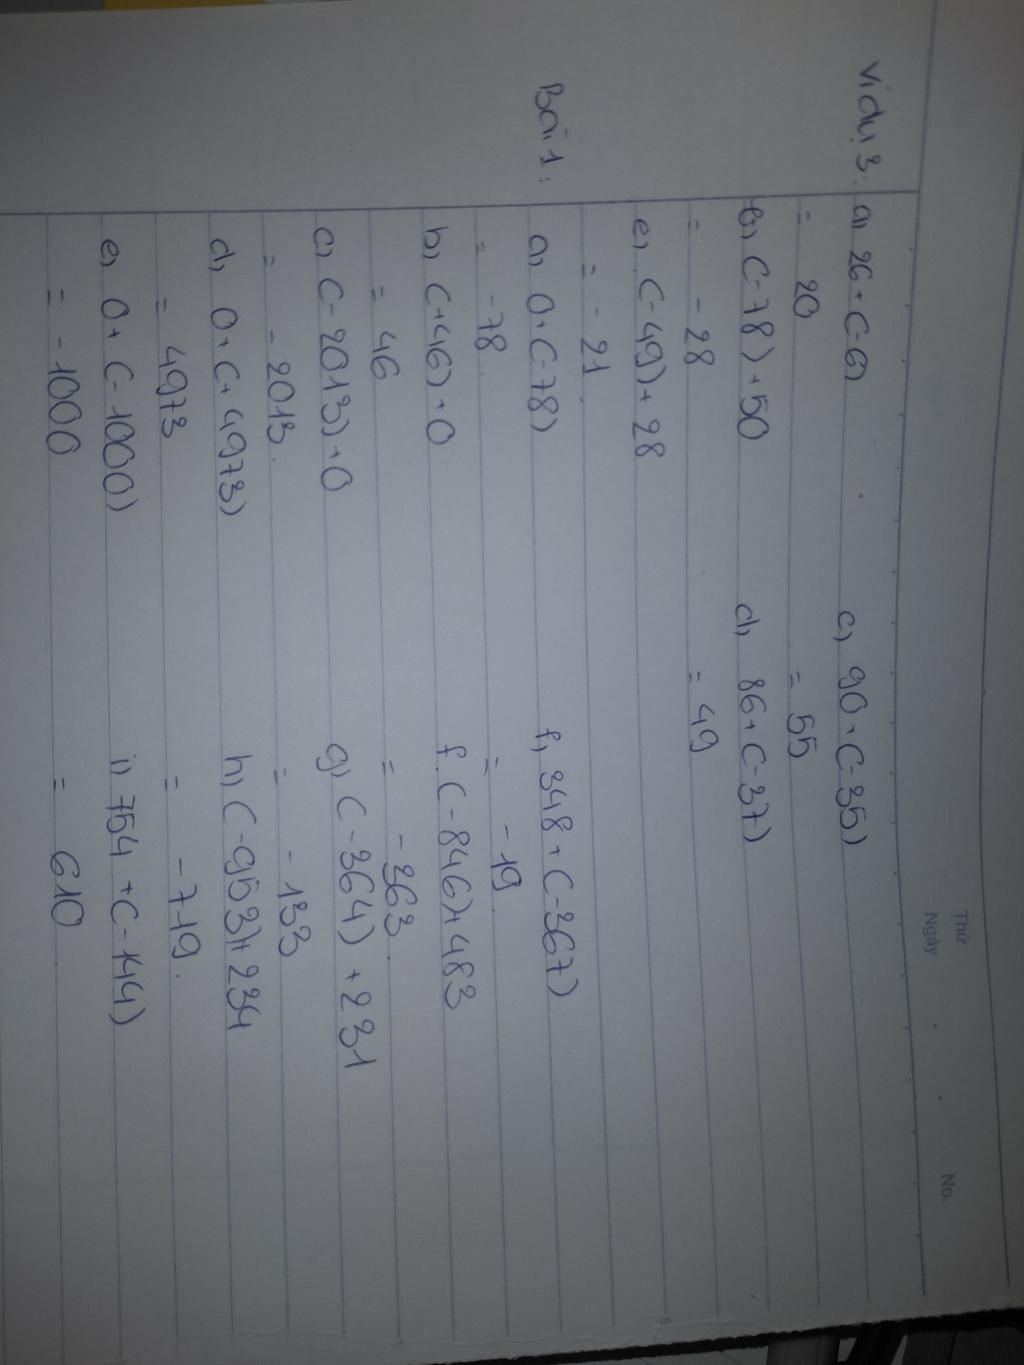 Thứ
Ngày
No.
Ví dụ 3: a, 26 + (-6) c, 90 + (-35)
= 20 = 55
b, (-78) + 50 d, 86 + (-37)
= -28 = 49
e, (-49) + 28
= -21.
Bài 1: a, 0 + (-78) f, 348 + (-367)
= -78. = -19.
b, (+46) + 0 f, (-846) + 483
= 46 = -363.
c, (-2013) + 0 g, (-364) + 231
= -2013. = -133
d, 0 + (+4973) h, (-953) + 234
= 4973 = -719.
e, 0 + (-1000) i, 754 + (-144)
= -1000 = 610.